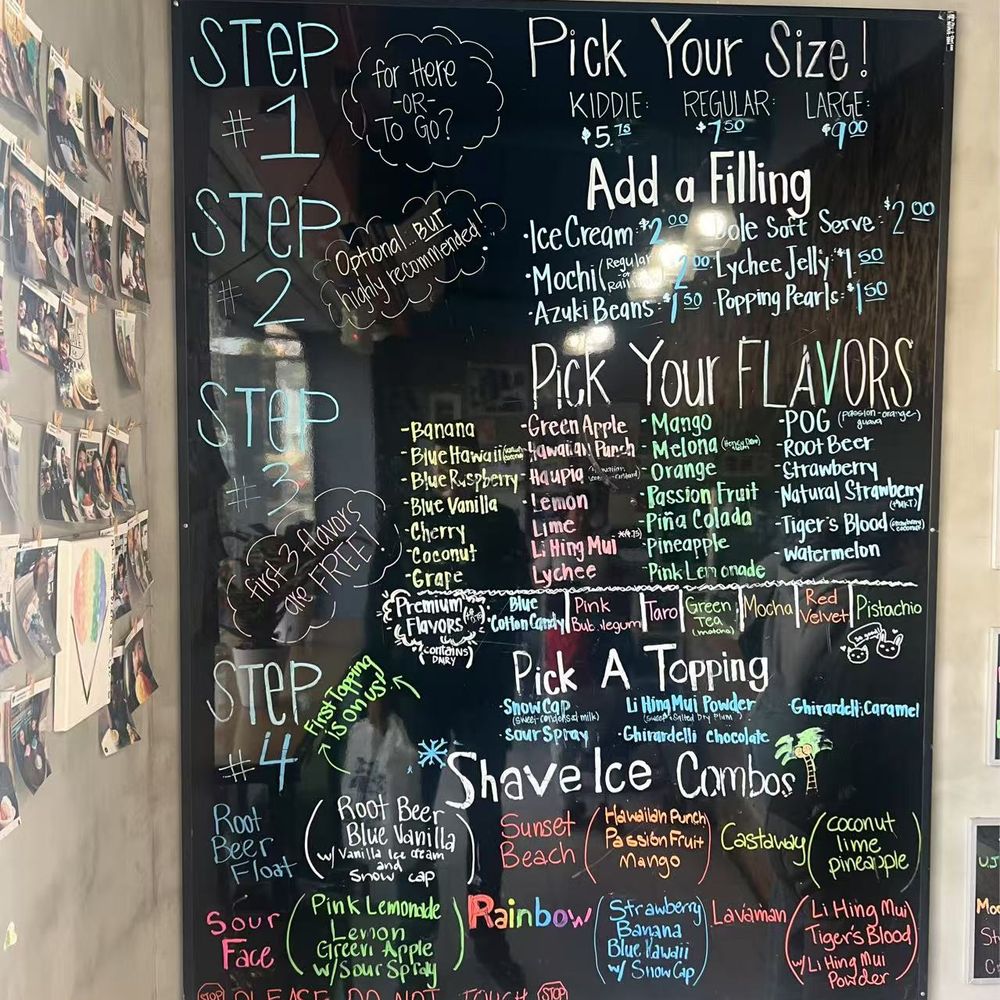 STEP #1
for Here
-OR-
To Go?
Pick Your Size!
KIDDIE: REGULAR: LARGE:
$5.75 $7.50 $9.00
STEP #2
Optional...BUT
highly recommended!
Add a Filling
·Ice Cream $2.00
·Mochi (Regular 2.00
·Azuki Beans: $1.50
Dole Soft Serve: $2.00
Lychee Jelly: $1.50
Popping Pearls: $1.50
STEP #3
first 3 flavors
are FREE!
Pick Your FLAVORS
-Banana
-Blue Hawaii
-Blue Raspberry
-Blue Vanilla
-Cherry
-Coconut
-Grape
-Green Apple
-Hawaiian Punch
-Haupia
-Lemon
Lime
Li Hing Mui
Lychee
-Mango
-Melona
-Orange
-Passion Fruit
-Piña Colada
-Pineapple
-Pink Lemonade
-POG (passion-orange-
guava
-Root Beer
-Strawberry
-Natural Strawberry
-Tiger's Blood (strawberry
coconut)
-Watermelon
Premium
Flavors
(contains
DAIRY)
·Blue
Cotton Candy
Pink
Bubblegum
Taro
Green
Tea
(matcha)
Mocha
Red
Velvet
Pistachio
STEP #4
First Topping
is on us!
Pick A Topping
·Snow Cap
(sweet condensed milk)
·Sour Spray
Li Hing Mui Powder
(Sweet & Salted Dry Plum)
·Ghirardelli Chocolate
·Ghirardelli Caramel
Shave Ice Combos
Root
Beer
Float
(Root Beer
Blue Vanilla
w/ Vanilla Ice cream
and
Snow cap)
Sunset
Beach
(Hawaiian Punch
Passion Fruit
Mango)
Castaway
(Coconut
lime
pineapple)
Sour
Face
(Pink Lemonade
Lemon
Green Apple
w/ Sour Spray)
Rainbow
(Strawberry
Banana
Blue Hawaii
w/ Snow Cap)
Lavaman
(Li Hing Mui
Tiger's Blood
w/ Li Hing Mui
Powder)
STOP PLEASE DO NOT TOUCH STOP